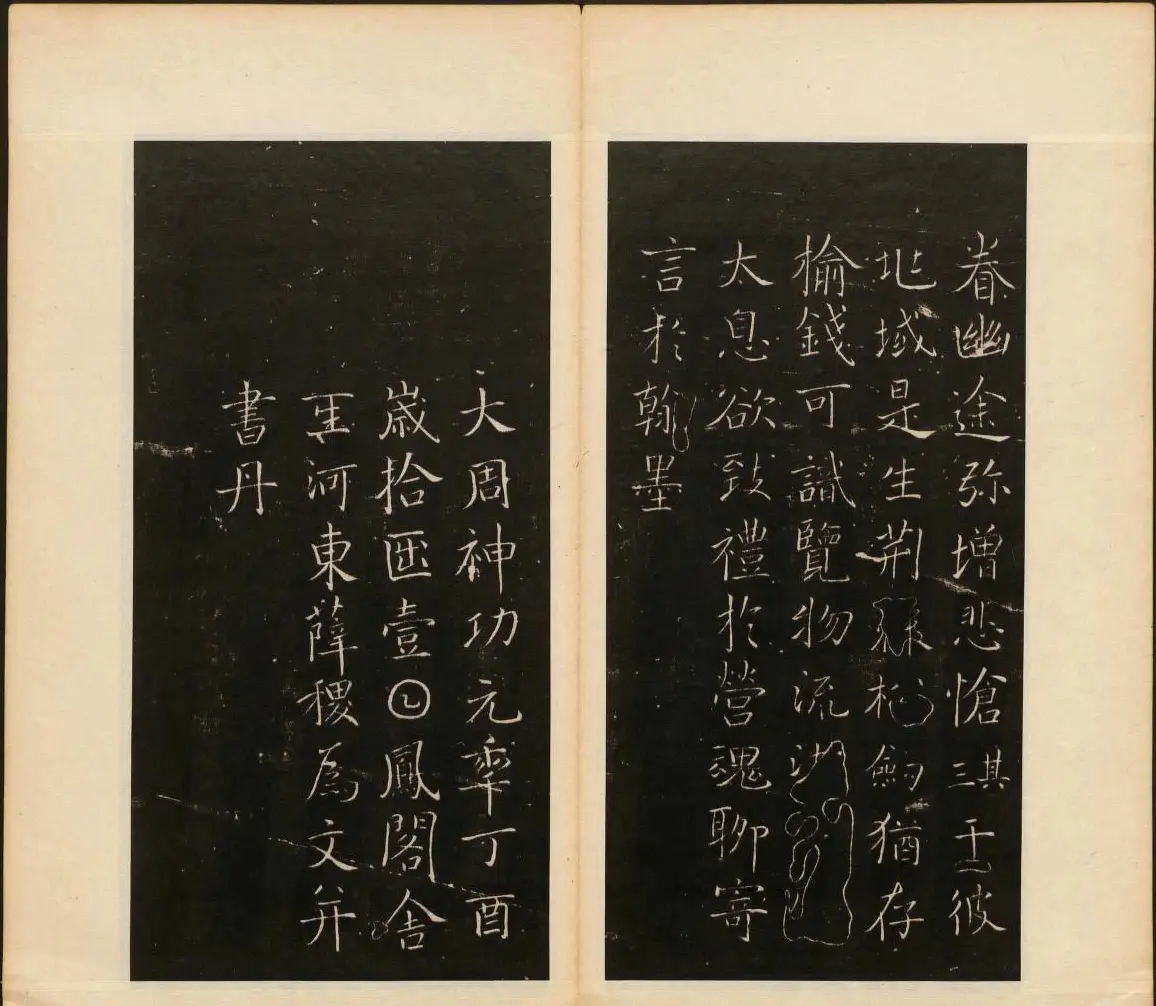 眷幽途弥增悲愴其三于彼
兆域是生荆棘松劍猶存
榆錢可識覽物流
太息欲致禮於營魂聊寄
言於翰墨
大周神功元𠡦丁酉
歲拾𠥱壹𡆠鳳閣舍
𤯔河東薛稷為文并
書丹